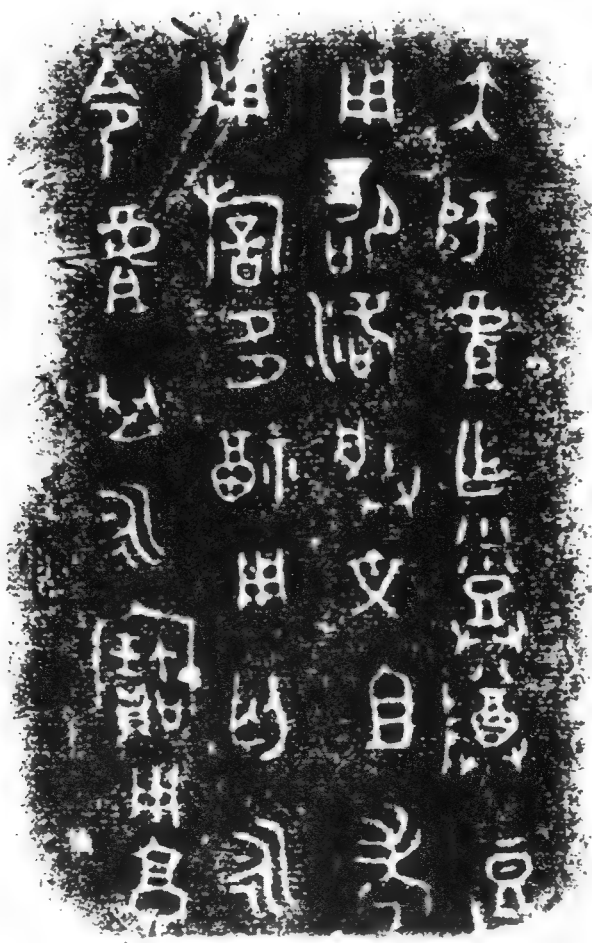 大師虘乍𤼷尊豆
用卲洛朕文且考
用𣄨多福用匃永
令虘其永寶用亯